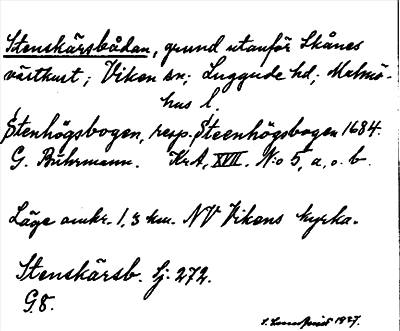 Stenskärsbådan, grund utanför Skånes
västkust; Viken sn; Luggude hd; Malmö-
hus l.
Stenhögsbogen, resp. Steenhögsbogen 1684.
G. Buhrmann. KrA, XVII. N:o 5, a, o. b.
Läge omkr. 1,3 km. NV Vikens kyrka.
Stenskärsb. Sj. 272.
G8.
1927.